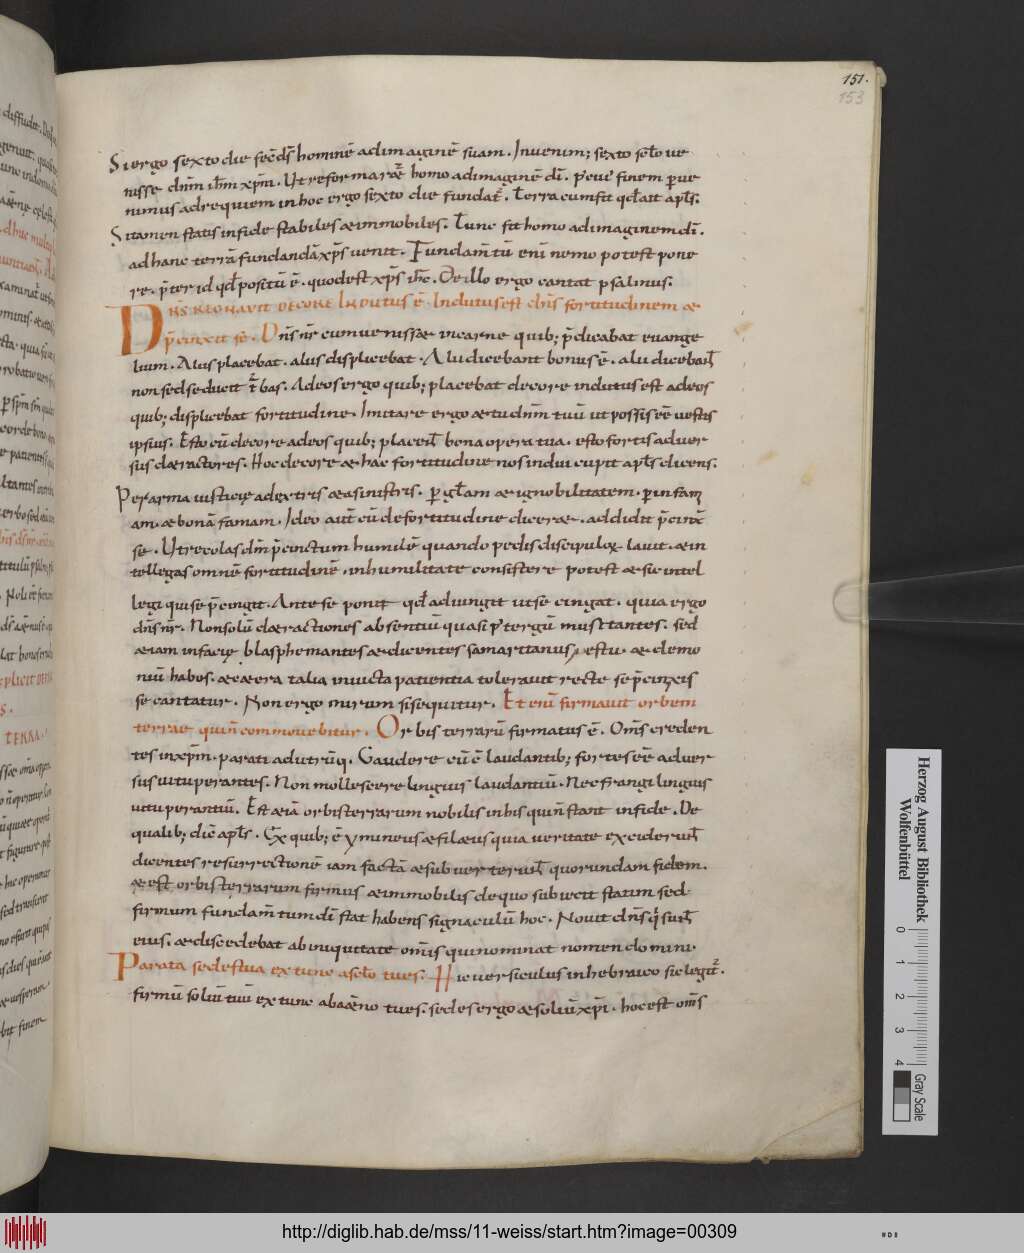 151.
153
Si ergo sexto die secd̄s hominē ad imaginē suam. Invenim; sexto scl̄o ve
nisse dn̄m ih̄m xp̄m. Ut reformaraet̄ homo ad imaginē dī. p̄ eū finem p̄ve
nimus ad requiem in hoc ergo sexto die fundat̄. Terra cum fit qd̄ ait apl̄s.
Si tamen statis in fide stabiles & immobiles. Tunc fit homo ad imaginem dī.
ad hanc terrā fundandā xp̄s venit. Fundam̄tū enī nemo potest pone
re. p̄ter id qd̄ positū ē. quod est xp̄s ih̄c. De illo ergo cantat psalmus.
DN̄S REGNAVIT DECORE INDUTUS Ē. Indutus est dn̄s fortitudinem &
p̄cinxit sē. Dn̄s nr̄ cum venisset in carne quib; p̄dicabat evange
lium. Aliis placebat. aliis displicebat. Alii dicebant bonus ē. alii dicebant
non sed seducit t̄bas. Ad eos ergo quib; placebat decore indutus est ad eos
quib; displicebat fortitudine. Imitare ergo & tu dn̄m tuū ut possis eē vestis
ipsius. Esto cū decore ad eos quib; placent bona opera tua. esto fortis adver
sus detractores. Hoc decore & hac fortitudine nos indui cupit apl̄s dicens.
Per arma iusticie a dextris & a sinistris. p gl̄am & ignobilitatem. p infam
am. & bonā famam. Ideo aut̄ cū de fortitudine diceret. addidit p̄cinx̄
sē. Ut recolas dn̄m p̄cinctum humilē quando pedis discipulor lavit. & in
tellegas omnē fortitudinē. in humilitate consistere potest & sic intel
legi qui se p̄cingit. Ante se ponit qd̄ adiungit ut se cingat. quia ergo
dn̄s nr̄. Non solū detractiones absentiū quasi p̄ tergū musitantes. sed
etiam in facie blasphemantes & dicentes samaritanus es tu. & demo
niū habes. et cetera talia invicta patientia toleravit recte se p̄cinxis
se cantatur. Non ergo mirum si sequitur. Et enī firmavit orbem
terrae qui n̄ commovebitur. Orbis terrarū firmatus ē. Om̄s creden
tes in xp̄m. parati ad utrūq. Gaudere cū ē laudantib; fortes eē adver
sus vituperantes. Non mollescere linguis laudantiū. Nec frangi linguis
vituperantiū. Est etiā orbis terrarum nobilis in his qui n̄ stant in fide. De
qualib; dic̄ apl̄s. Ex quib; ē ymineus & filetus quia veritate exciderunt
dicentes resurrectionē iam factā & subverterunt quorundam fidem.
& est orbis terrarum firmus & immobilis de quo subiecit statim sed
firmum fundam̄tum dī stat habens signaculū hoc. Novit dn̄s q̄ sunt
eius. & discedebat ab iniquitate om̄is qui nominat nomen domini.
Parata sedes tua ex tunc a scl̄o tu es. Hic versiculus in hebraico sic legit̄.
firmū soliū tuū ex tunc ab aet̄no tu es. sedes ergo & soliū xp̄i. hoc est om̄s
Herzog August Bibliothek
Wolfenbüttel
0 1 2 3 4
Gray Scale
http://diglib.hab.de/mss/11-weiss/start.htm?image=00309